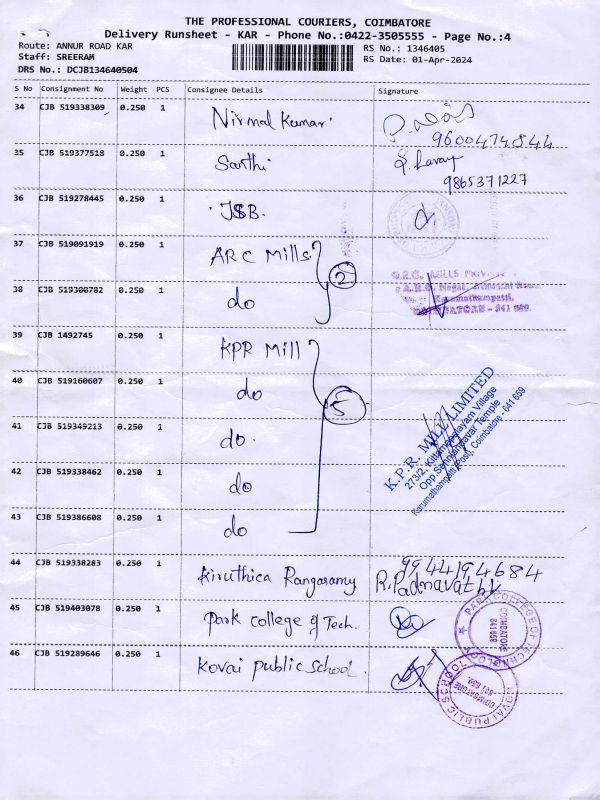 THE PROFESSIONAL COURIERS, COIMBATORE
Delivery Runsheet - KAR - Phone No.:0422-3505555 - Page No.:4
Route: ANNUR ROAD KAR
RS No.: 1346405
Staff: SREERAM
RS Date: 01-Apr-2024
DRS No.: DCJB134640504
S No Consignment No Weight PCS Consignee Details Signature
34 CJB 519338309 0.250 1 Nirmal Kumar.
9600474844
35 CJB 519377518 0.250 1 Sarthi
9865371227
36 CJB 519278445 0.250 1 JSB.
37 CJB 519091919 0.250 1 ARC Mills
2
38 CJB 519300782 0.250 1 do
MILLS
Karumathampatti,
- 641 659.
39 CJB 1492745 0.250 1 KPR Mill
40 CJB 519160607 0.250 1 do
5
K.P.R. MILL LIMITED
273/2, Kittampalayam Village
Opp.Sennandavar Temple
Karumathampatti (Post), Coimbatore - 641 659
41 CJB 519349213 0.250 1 do.
42 CJB 519338462 0.250 1 do
43 CJB 519386608 0.250 1 do
44 CJB 519338283 0.250 1 Kiruthica Rangasamy
9944194684
R.Padmavathi
45 CJB 519403078 0.250 1 Park college of Tech.
PARK COLLEGE OF TECHNOLOGY
COIMBATORE
641 659
46 CJB 519289646 0.250 1 Kovai public school.
KOVAI PUBLIC SCHOOL
COIMBATORE
641 659.